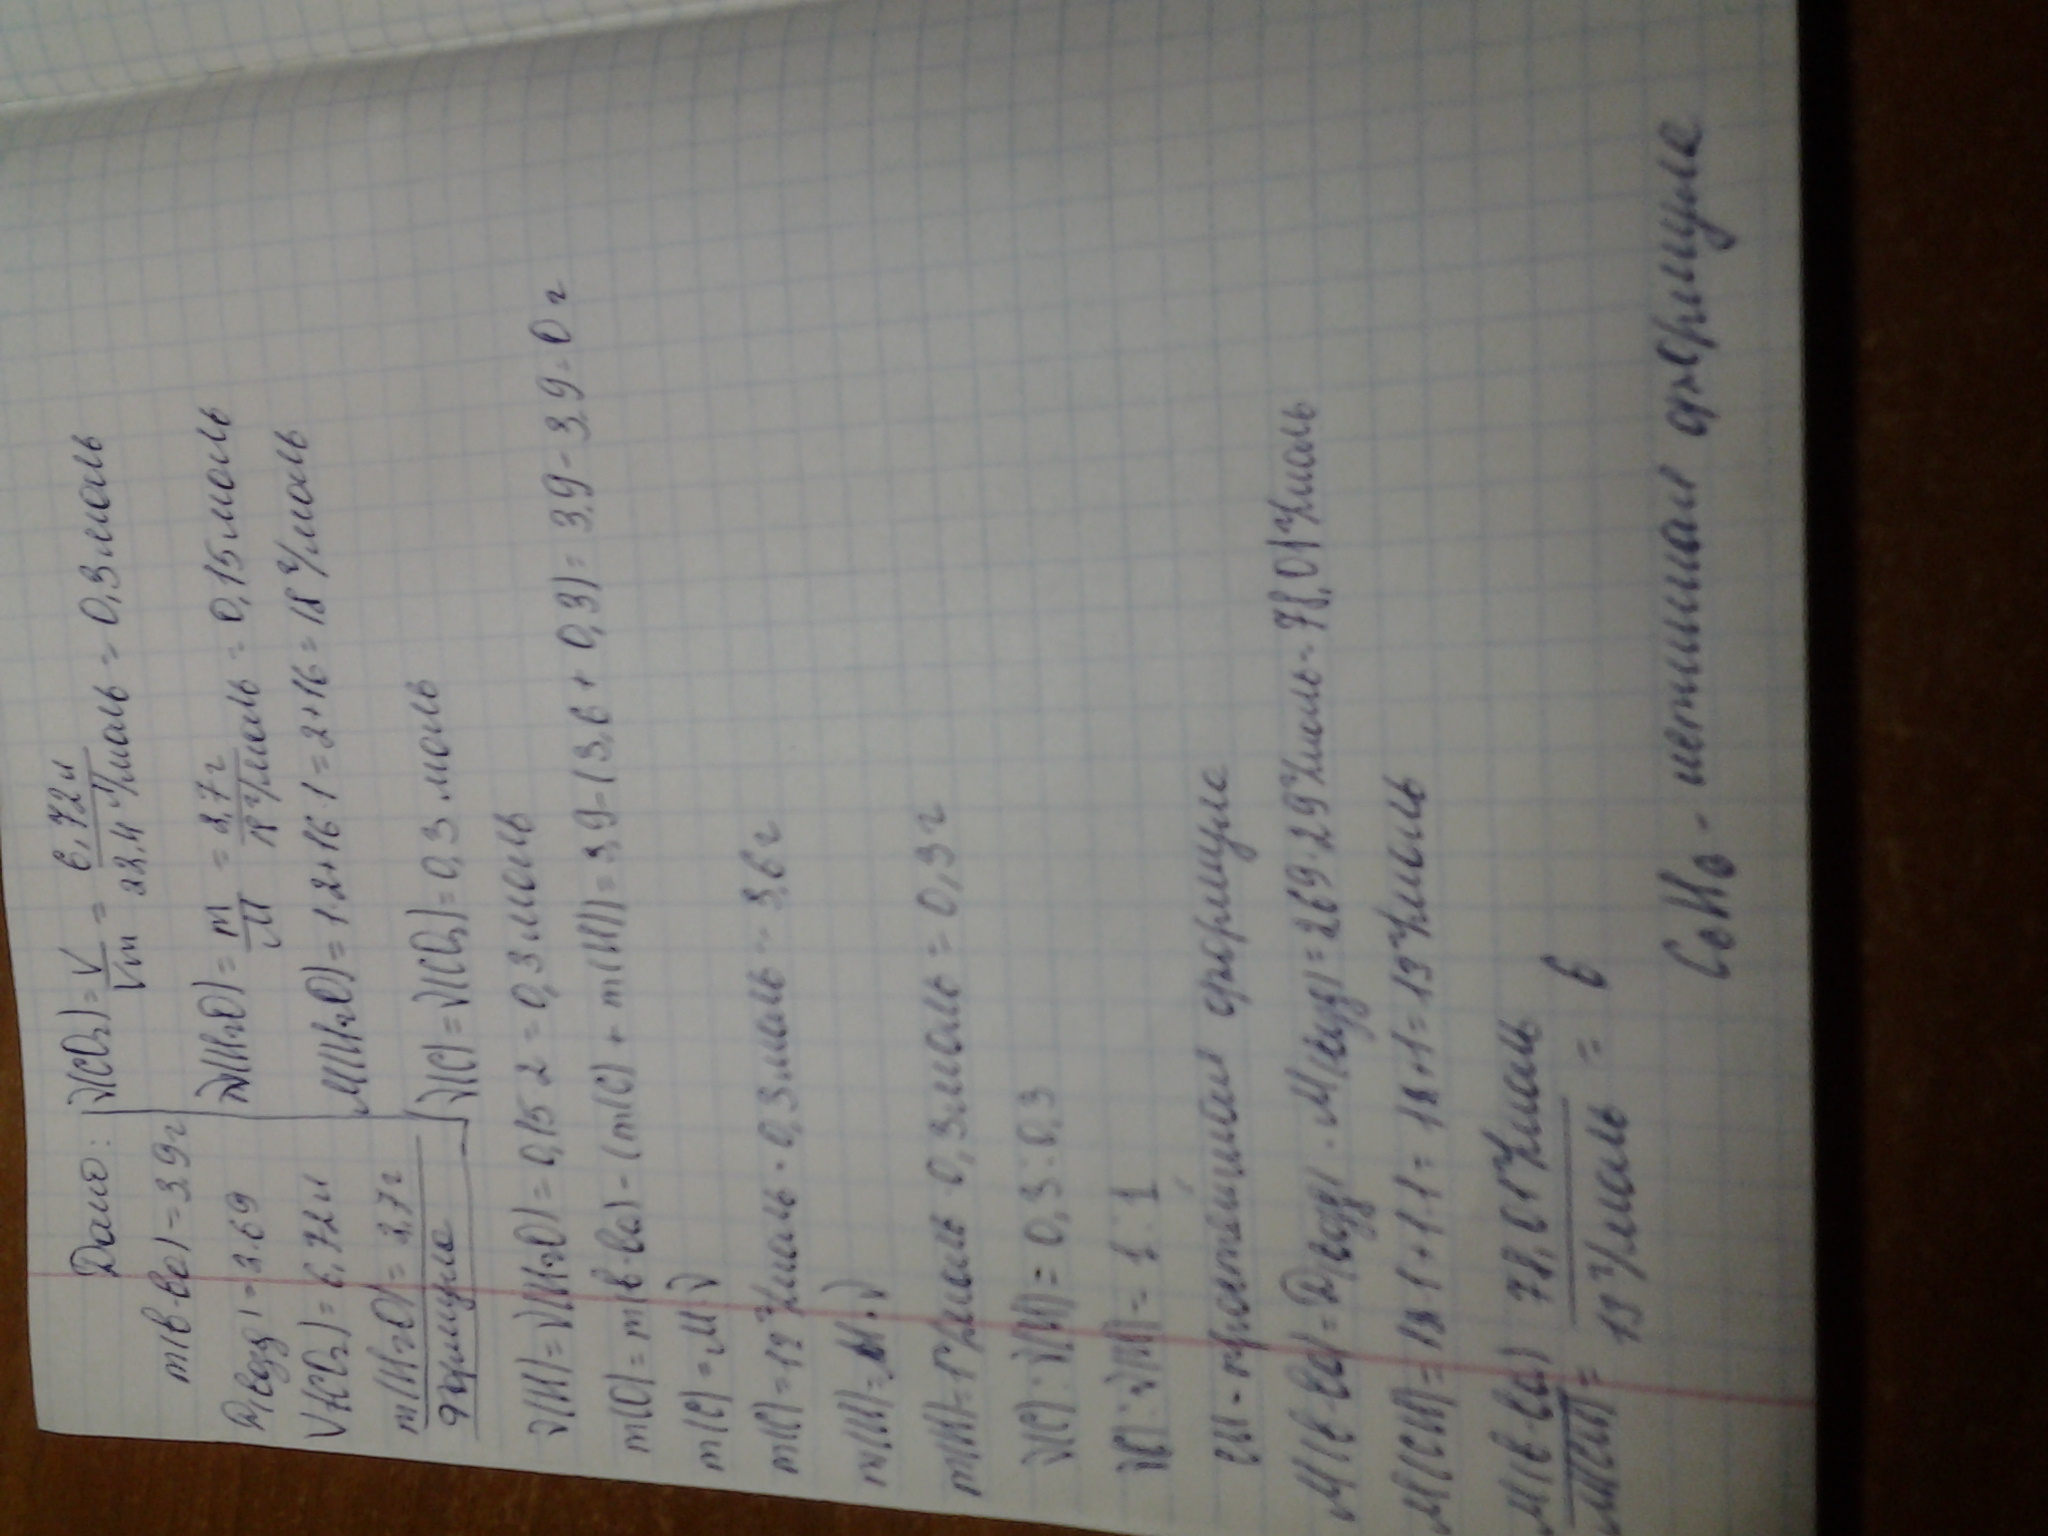 Дано:
m(в-ва) = 3.9г
D(возд) = 2.69
V(CO₂) = 6,72л
m(H₂O) = 2,7г
Формула
ν(CO₂) = V/Vm = 6,72л/22.4 л/моль = 0,3 моль
ν(H₂O) = m/M = 2,7г/18 г/моль = 0,15 моль
M(H₂O) = 1·2+16·1 = 2+16 = 18 г/моль
ν(C) = ν(CO₂) = 0,3 моль
ν(H) = ν(H₂O) = 0,15·2 = 0,3 моль
m(O) = m(в-ва) - (m(C) + m(H)) = 3,9-(3,6 + 0,3) = 3,9-3,9 = 0 г
m(C) = M·ν
m(C) = 12 г/моль · 0,3 моль = 3,6 г
m(H) = M·ν
m(H) = 1 г/моль · 0,3 моль = 0,3 г
ν(C) : ν(H) = 0,3 : 0,3
ν(C) : ν(H) = 1 : 1
CH - простейшая формула
M(в-ва) = D(возд) · M(возд) = 2.69·29 г/моль = 78,01 г/моль
M(CH) = 12·1+1·1 = 12+1 = 13 г/моль
M(в-ва)/M(CH) = 78,01 г/моль/13 г/моль = 6
C₆H₆ - истинная формула